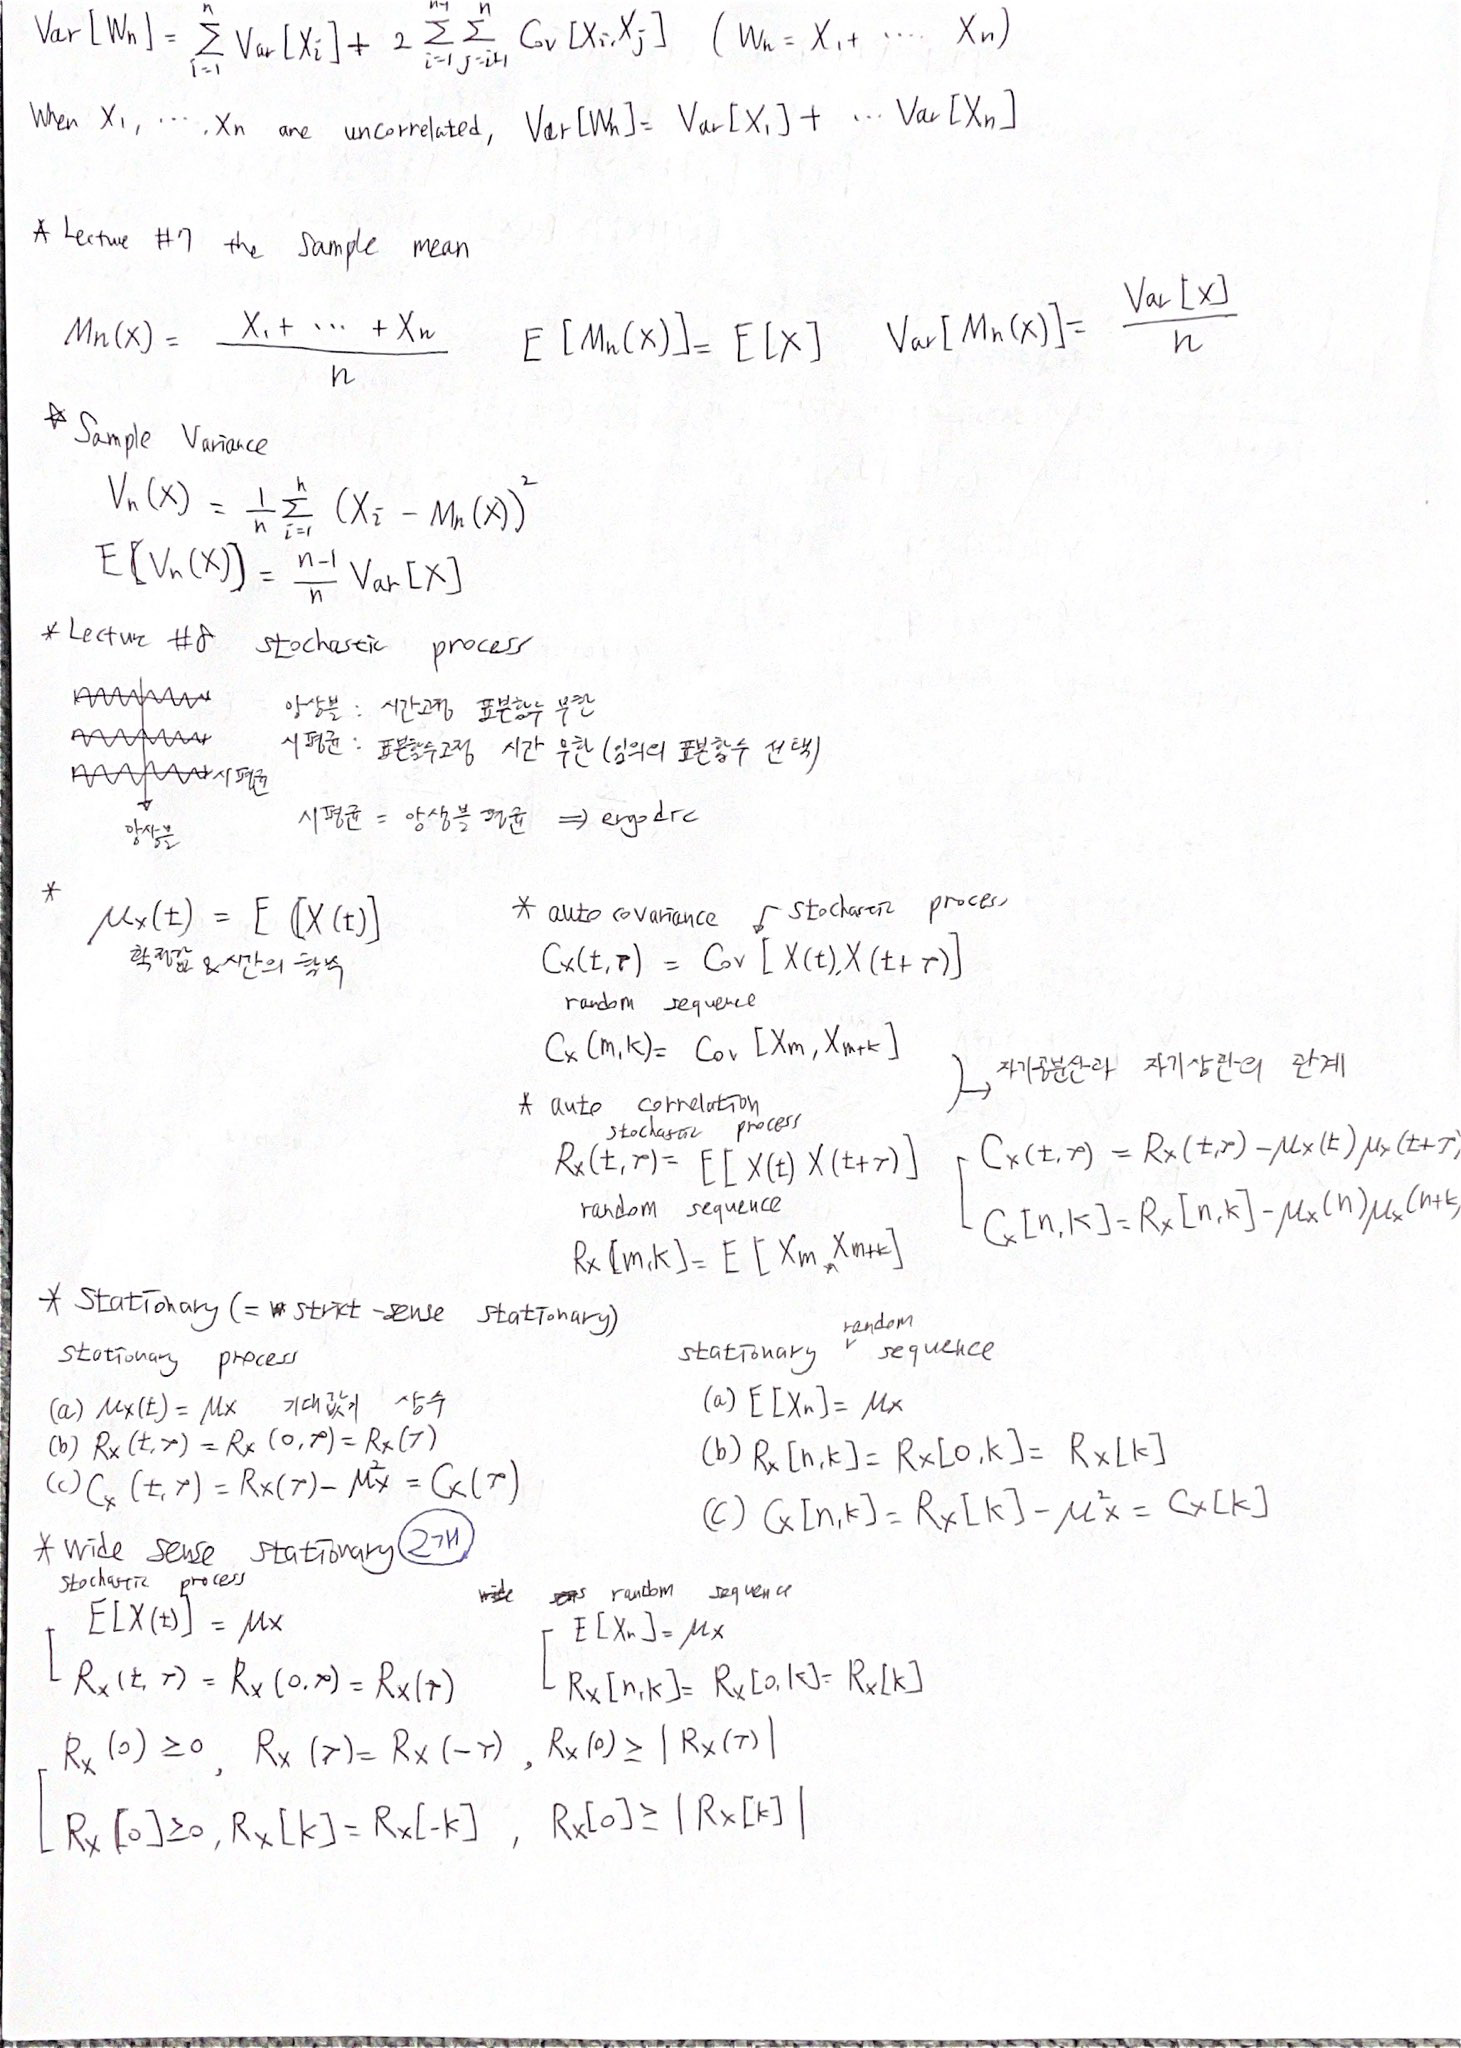 Var[Wn] = Σ_{i=1}^{n} Var[Xi] + 2 Σ_{i=1}^{n-1} Σ_{j=i+1}^{n} Cov[Xi, Xj] (Wn = X1 + ···· Xn)
When X1, ····, Xn are uncorrelated, Var[Wn] = Var[X1] + ··· Var[Xn]
* Lecture #7 the sample mean
Mn(X) = (X1 + ··· + Xn) / n E[Mn(X)] = E[X] Var[Mn(X)] = Var[X] / n
* Sample Variance
Vn(X) = 1/n Σ_{i=1}^{n} (Xi - Mn(X))²
E[Vn(X)] = (n-1)/n Var[X]
* Lecture #8 stochastic process
앙상블 : 시간고정 표본함수 무한
시평균 : 표본함수고정 시간 무한 (임의의 표본함수 선택)
시평균
앙상블
시평균 = 앙상블 평균 ⇒ ergodic
* μx(t) = E[X(t)]
확정값 & 시간의 함수
* auto covariance stochastic process
Cx(t,τ) = Cov[X(t), X(t+τ)]
random sequence
Cx(m,k) = Cov[Xm, Xm+k]
자기공분산과 자기상관의 관계
* auto correlation
stochastic process
Rx(t,τ) = E[X(t) X(t+τ)]
Cx(t,τ) = Rx(t,τ) - μx(t) μx(t+τ)
random sequence
Cx[n,k] = Rx[n,k] - μx(n) μx(n+k
Rx[m,k] = E[Xm Xm+k]
* Stationary (= strict-sense stationary)
stationary process
(a) μx(t) = μx 기대값이 상수
(b) Rx(t,τ) = Rx(0,τ) = Rx(τ)
(c) Cx(t,τ) = Rx(τ) - μ²x = Cx(τ)
stationary random sequence
(a) E[Xn] = μx
(b) Rx[n,k] = Rx[0,k] = Rx[k]
(c) Cx[n,k] = Rx[k] - μ²x = Cx[k]
* wide sense stationary 2개
stochastic process
E[X(t)] = μx
Rx(t,τ) = Rx(0,τ) = Rx(τ)
random sequence
E[Xn] = μx
Rx[n,k] = Rx[0,k] = Rx[k]
Rx(0) ≥ 0, Rx(τ) = Rx(-τ), Rx(0) ≥ |Rx(τ)|
Rx[0] ≥ 0, Rx[k] = Rx[-k], Rx[0] ≥ |Rx[k]|